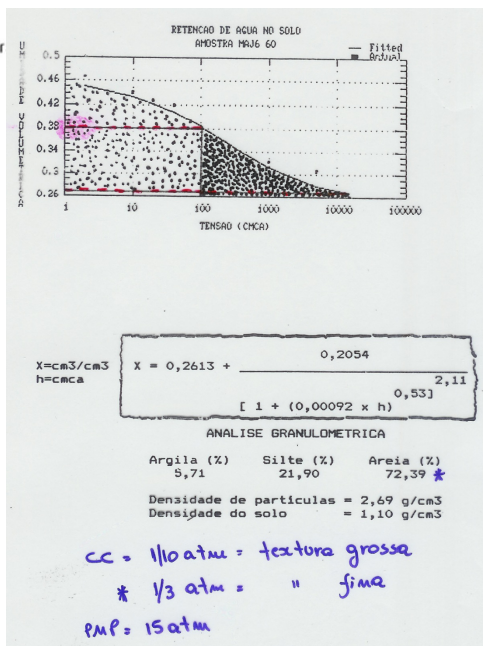 r
RETENCAO DE AGUA NO SOLO
AMOSTRA MAJ6 60
Fitted
Actual
0.5
0.46
0.42
0.38
0.34
0.3
0.26
1 10 100 1000 10000 100000
TENSAO (CMCA)
X=cm3/cm3
h=cmca
0,2054
X = 0,2613 +
2,11
0,53]
[ 1 + (0,00092 x h)
ANALISE GRANULOMETRICA
Argila (%) Silte (%) Areia (%)
5,71 21,90 72,39 *
Densidade de particulas = 2,69 g/cm3
Densidade do solo = 1,10 g/cm3
CC = 1/10 atm = textura grossa
* 1/3 atm = " fina
PMP = 15 atm